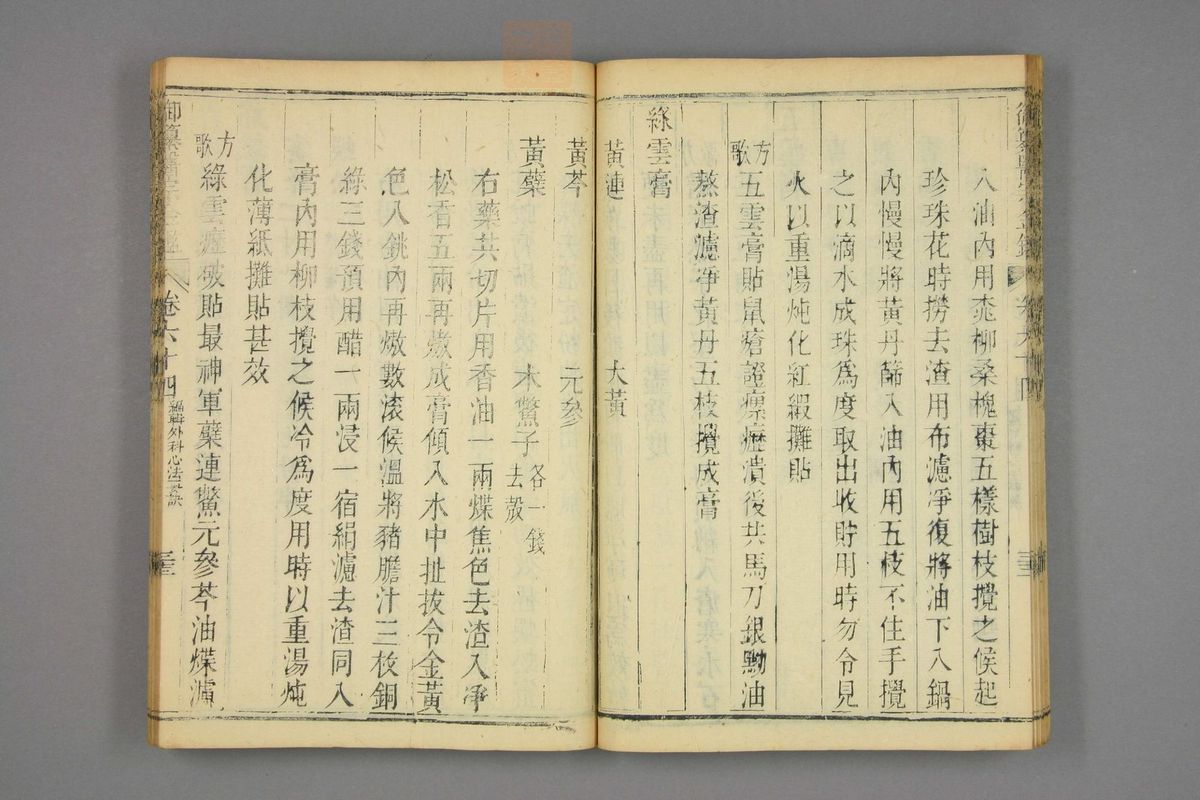 入油內用桃柳桑槐棗五樣樹枝攪之候起
珍珠花時撈去渣用布濾淨復將油下入鍋
內慢慢將黃丹篩入油內用五枝不住手攪
之以滴水成珠爲度取出收貯用時勿令見
火以重湯炖化紅緞攤貼
方歌 五雲膏貼鼠瘡證瘰癧潰後共馬刀銀黝油
熬渣濾淨黃丹五枝攪成膏
綠雲膏
黃連 大黃
黃芩 元參
黃蘗 木鱉子去殼各一錢
右藥共切片用香油一兩煠焦色去渣入淨
松香五兩再熬成膏傾入水中扯拔令金黃
色入銚內再熬數滾候溫將豬膽汁三枚銅
綠三錢預用醋一兩浸一宿絹濾去渣同入
膏內用柳枝攪之候冷爲度用時以重湯炖
化薄紙攤貼甚效
方歌 綠雲癧破貼最神軍蘗連鱉元參芩油煠濾
卷六十四 編輯外科心法要訣